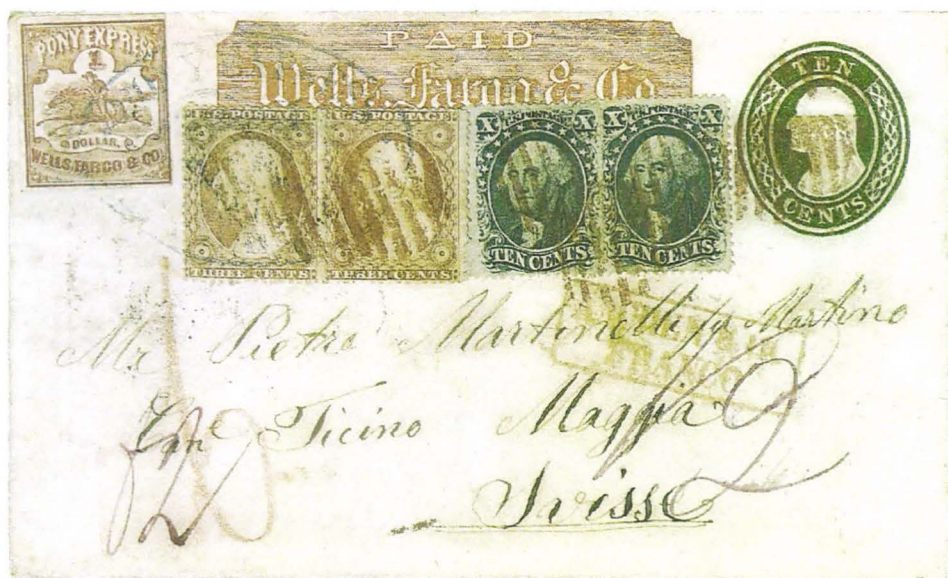 PONY EXPRESS
1
DOLLAR.
WELLS, FARGO & CO
PAID
Wells, Fargo & Co
U.S. POSTAGE
THREE CENTS
U.S. POSTAGE
THREE CENTS
X U.S. POSTAGE X
TEN CENTS
X U.S. POSTAGE X
TEN CENTS
TEN
CENTS
Mr Pietro Martinelli Martino
Ticino Maggia
Svisse
12
2